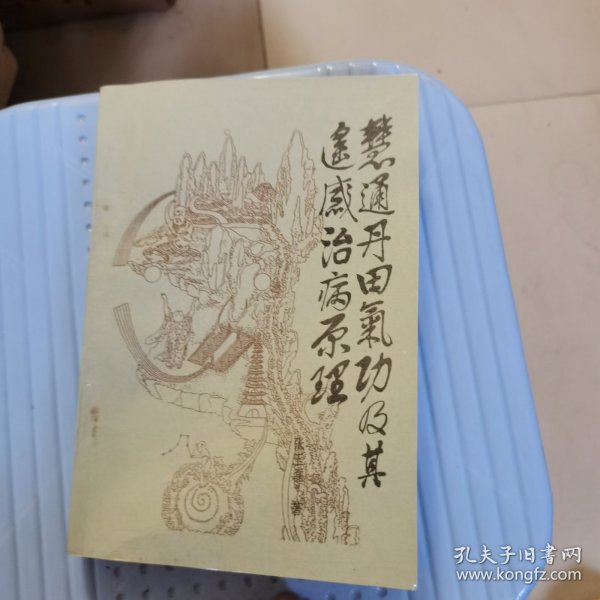 慧通丹田氣功及其
遙感治病原理
著
孔夫子旧書网
www.kongfz.com